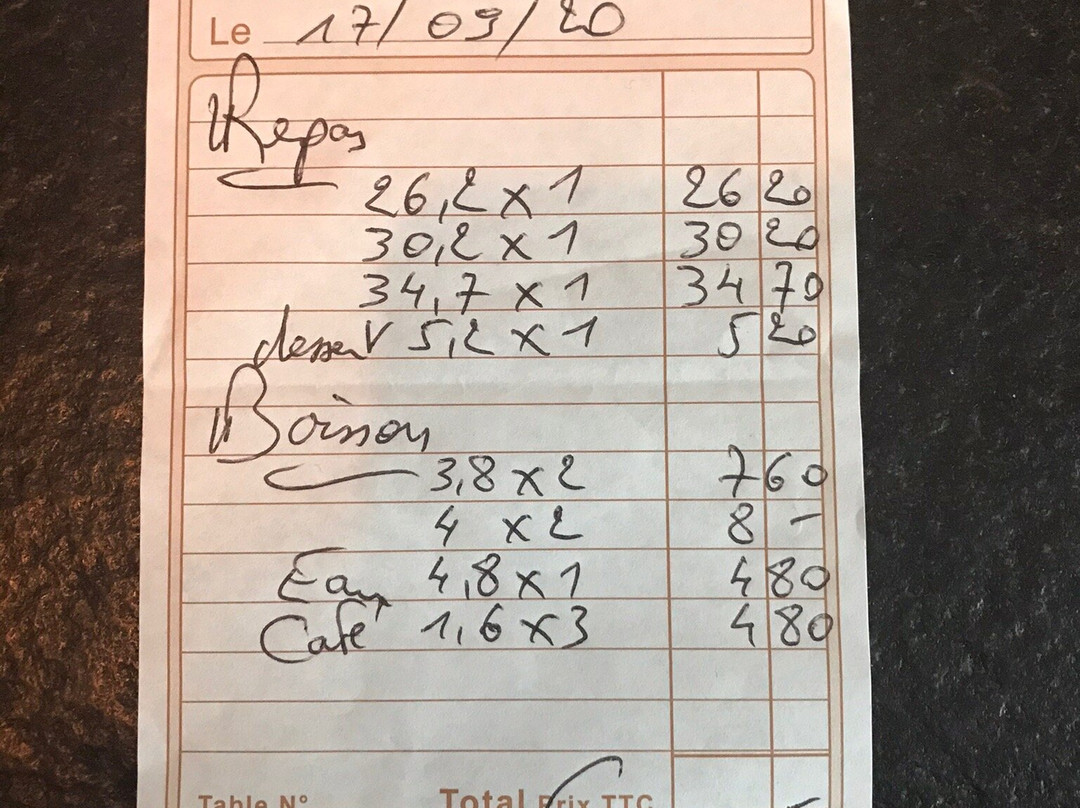 Le 17/09/20
Repas
26,2 x 1 26 20
30,2 x 1 30 20
34,7 x 1 34 70
dessert 5,2 x 1 5 20
Boisson
3,8 x 2 7 60
4 x 2 8 –
Eau 4,8 x 1 4 80
Café 1,6 x 3 4 80
Table N° Total Prix TTC